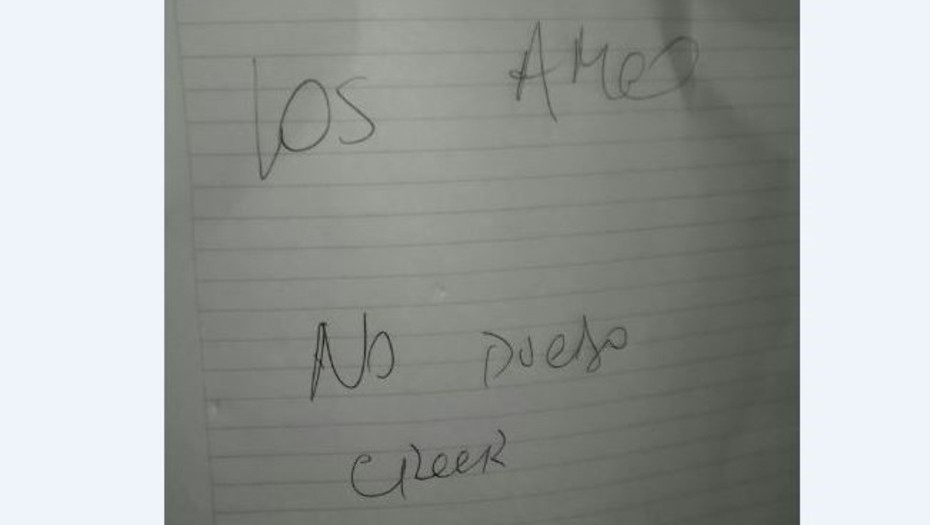 Los Ameo
No puedo
CREER